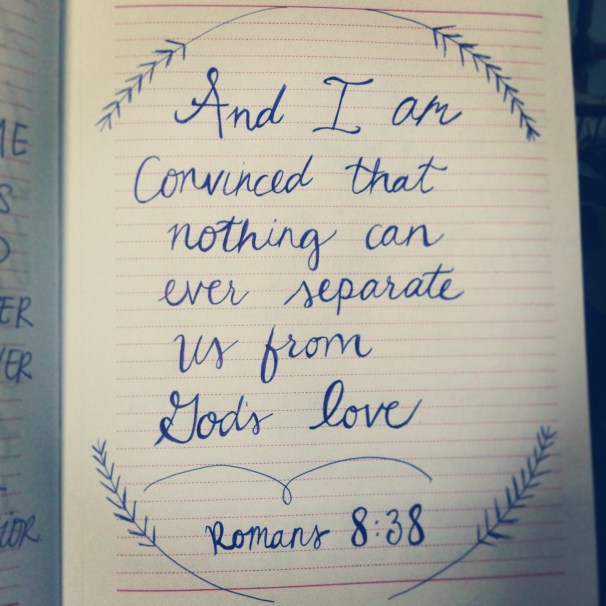 And I am
Convinced that
nothing can
ever separate
us from
God's love
Romans 8:38
ER
ER